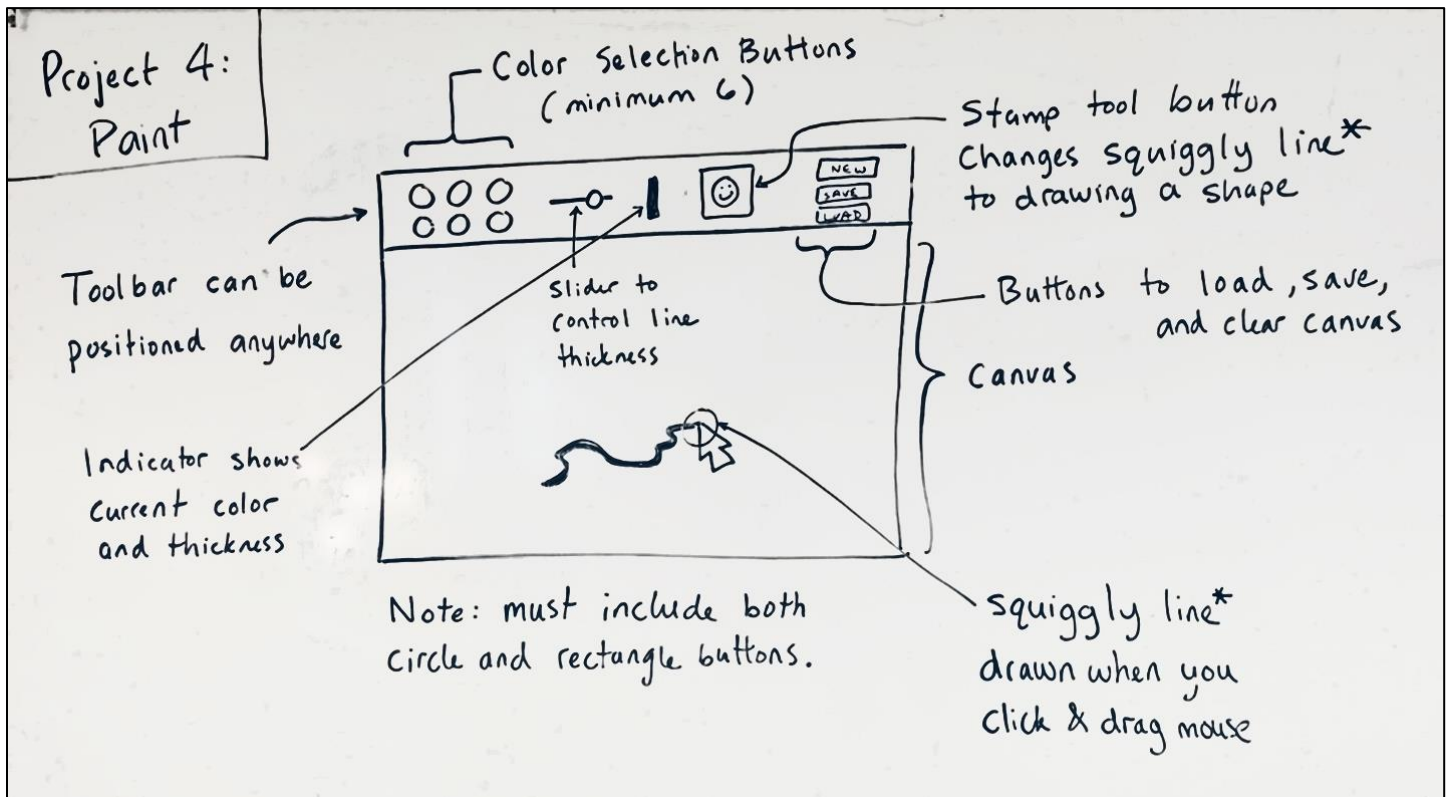 Project 4:
Paint
Color Selection Buttons
(minimum 6)
Stamp tool button
Changes squiggly line*
to drawing a shape
NEW
SAVE
LOAD
Toolbar can be
positioned anywhere
Slider to
control line
thickness
Buttons to load, save,
and clear canvas
Canvas
Indicator shows
current color
and thickness
Note: must include both
circle and rectangle buttons.
squiggly line*
drawn when you
click & drag mouse